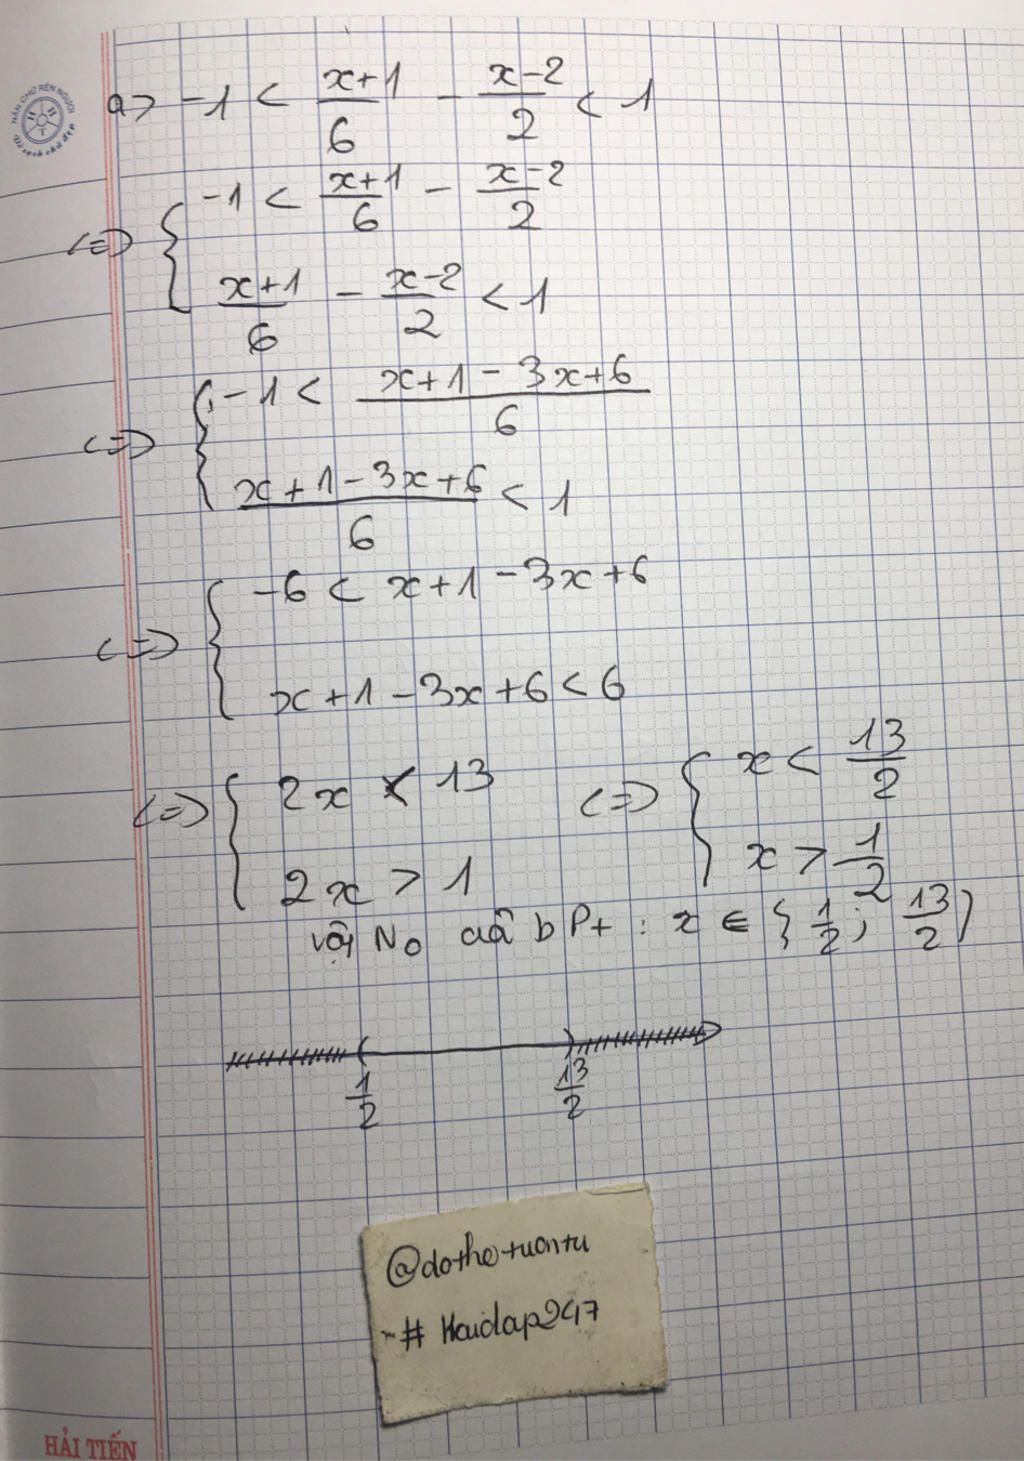 NÂN CHỮ RÈN NGƯỜI
Vở sạch chữ đẹp
a> -1 < (x+1)/6 - (x-2)/2 < 1
<=> { -1 < (x+1)/6 - (x-2)/2
(x+1)/6 - (x-2)/2 < 1
<=> { -1 < (x+1-3x+6)/6
(x+1-3x+6)/6 < 1
<=> { -6 < x+1-3x+6
x+1-3x+6 < 6
<=> { 2x < 13 <=> { x < 13/2
2x > 1 x > 1/2
vậy No của bPt : x ∈ { 1/2 ; 13/2 )
1/2 13/2
@dothetuantu
-# Hoidap247
HẢI TIẾN